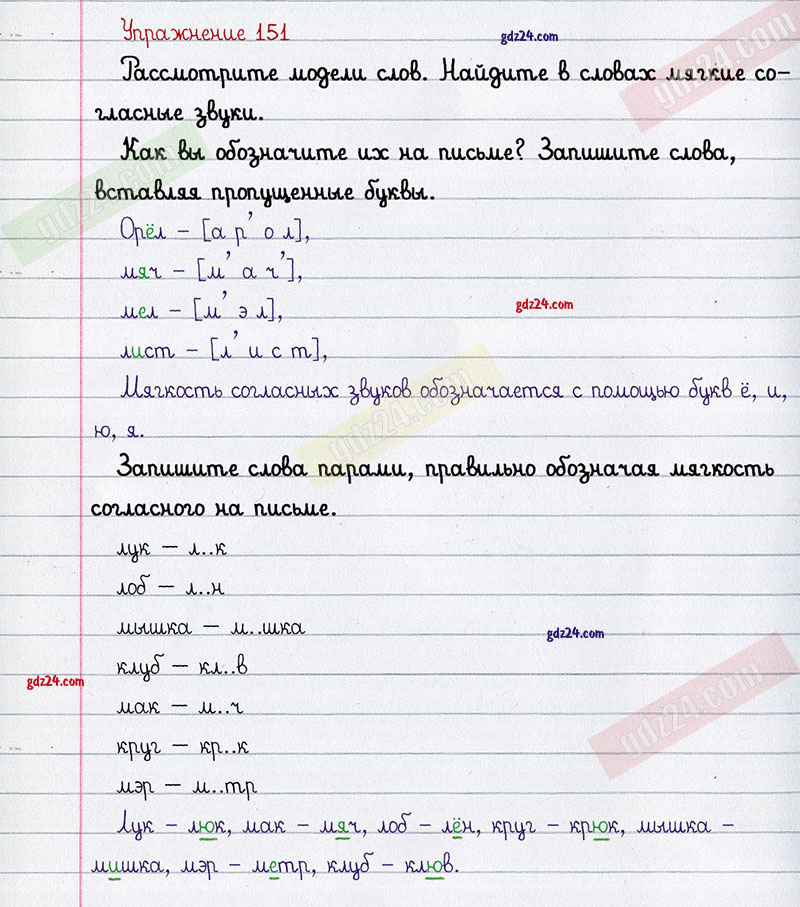 Упражнение 151
gdz24.com
Рассмотрите модели слов. Найдите в словах мягкие со-
гласные звуки.
Как вы обозначите их на письме? Запишите слова,
вставляя пропущенные буквы.
Орёл – [а р’ о л],
мяч – [м’ а ч’],
мел – [м’ э л],
gdz24.com
лист – [л’ и с т],
Мягкость согласных звуков обозначается с помощью букв ё, и,
ю, я.
Запишите слова парами, правильно обозначая мягкость
согласного на письме.
лук – л..к
лоб – л..н
мышка – м..шка
gdz24.com
клуб – кл..в
gdz24.com
мак – м..ч
круг – кр..к
мэр – м..тр
Лук – люк, мак – мяч, лоб – лён, круг – крюк, мышка –
мишка, мэр – метр, клуб – клюв.
gdz24.com
gdz24.com
gdz24.com
gdz24.com